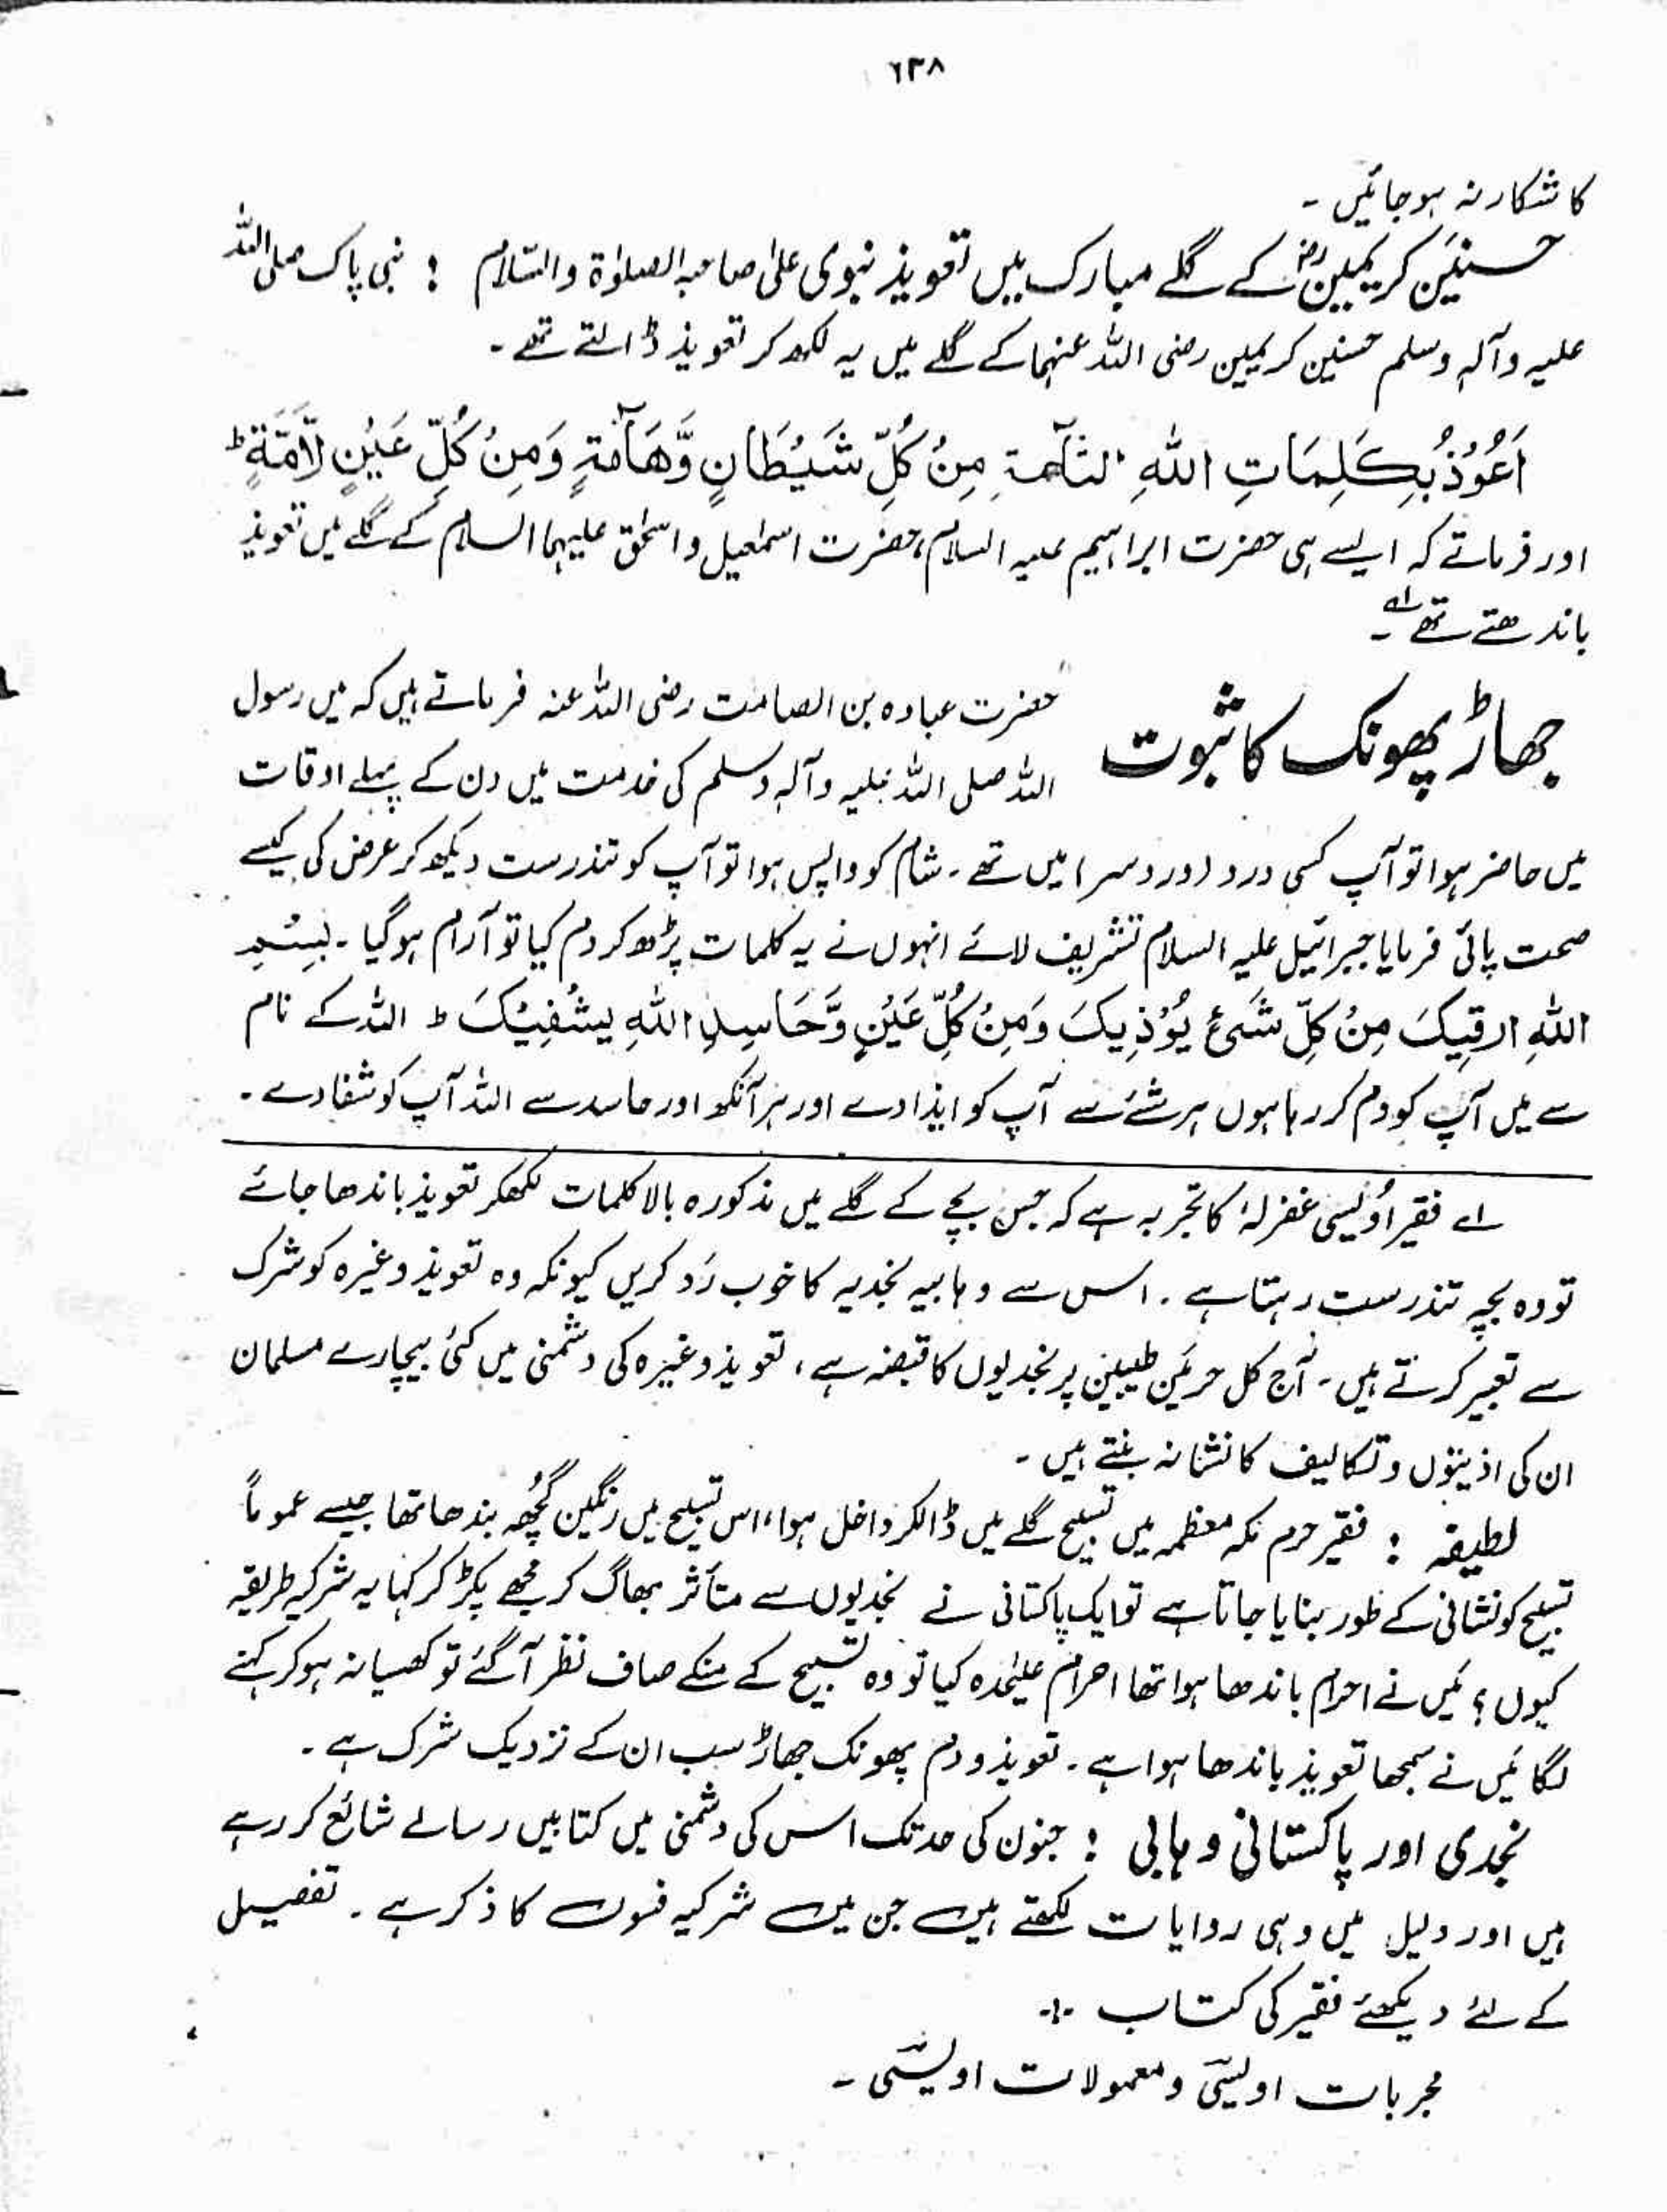 ٦٣٨
کا شکار نہ ہوجائیں ۔
حسنین کریمین رض کے گلے مبارک میں تعویذ نبوی علیٰ صاحبہ الصلوٰۃ والسّلام : نبی پاک صلی اللہ
علیہ وآلہٖ وسلم حسنین کریمین رضی اللہ عنہما کے گلے میں یہ لکھ کر تعویذ ڈالتے تھے ۔
اَعُوْذُ بِکَلِمَاتِ اللّٰہِ التَّآمَّۃِ مِنْ کُلِّ شَیْطَانٍ وَّھَآمَّۃٍ وَمِنْ کُلِّ عَیْنٍ لَّآمَّۃٍ ط
اور فرماتے کہ ایسے ہی حضرت ابراہیم علیہ السلام، حضرت اسمٰعیل و اسحٰق علیہما السلام کے گلے میں تعویذ
باندھتے تھے لے ۔
جھاڑ پھونک کا ثبوت
حضرت عبادہ بن الصامت رضی اللہ عنہ فرماتے ہیں کہ میں رسول
اللہ صلی اللہ علیہ وآلہٖ وسلم کی خدمت میں دن کے پہلے اوقات
میں حاضر ہوا تو آپ کسی درد (دردسر) میں تھے ۔ شام کو واپس ہوا تو آپ کو تندرست دیکھ کر عرض کی کیسے
صحت پائی فرمایا جبرائیل علیہ السلام تشریف لائے انہوں نے یہ کلمات پڑھ کر دم کیا تو آرام ہوگیا ۔ بِسْمِ
اللّٰہِ ارقِیکَ مِنْ کُلِّ شَیْءٍ یُوْذِیکَ وَمِنْ کُلِّ عَیْنٍ وَّحَاسِدٍ اللّٰہِ یشْفِیْکَ ط اللہ کے نام
سے میں آپ کو دم کر رہا ہوں ہر شئے سے آپ کو ایذا دے اور ہر آنکھ اور حاسد سے اللہ آپ کو شفا دے ۔
لے فقیر اُویسی غفرلہٗ کا تجربہ ہے کہ جس بچے کے گلے میں مذکورہ بالا کلمات لکھکر تعویذ باندھا جائے
تو وہ بچہ تندرست رہتا ہے ۔ اس سے وہابیہ نجدیہ کا خوب رَد کریں کیونکہ وہ تعویذ وغیرہ کو شرک
سے تعبیر کرتے ہیں ۔ آج کل حرمین طیبین پر نجدیوں کا قبضہ ہے ، تعویذ وغیرہ کی دشمنی میں کئی بیچارے مسلمان
ان کی اذیتوں و تکالیف کا نشانہ بنتے ہیں ۔
لطیفہ : فقیر حرم مکہ معظمہ میں تسبیح گلے میں ڈالکر داخل ہوا ، اس تسبیح میں رنگین گچُّھ بندھا تھا جیسے عموماً
تسبیح کو نشانی کے طور بنایا جاتا ہے تو ایک پاکستانی نے نجدیوں سے متأثر بھاگ کر مجھے پکڑ کر کہا یہ شرکیہ طریقہ
کیوں ؟ مَیں نے احرام باندھا ہوا تھا احرام علیٰحدہ کیا تو وہ تسبیح کے منکے صاف نظر آگئے تو کھسیانہ ہوکر کہنے
لگا مَیں نے سمجھا تعویذ باندھا ہوا ہے ۔ تعویذ و دم پھونک جھاڑ سب ان کے نزدیک شرک ہے ۔
نجدی اور پاکستانی وہابی : جنون کی حد تک اس کی دشمنی میں کتابیں رسالے شائع کر رہے
ہیں اور دلیل میں وہی روایات لکھتے ہیں جن میں شرکیہ فسوں کا ذکر ہے ۔ تفصیل
کے لئے دیکھئے فقیر کی کتاب ۔:۔
مجربات اویسی و معمولات اویسی ۔